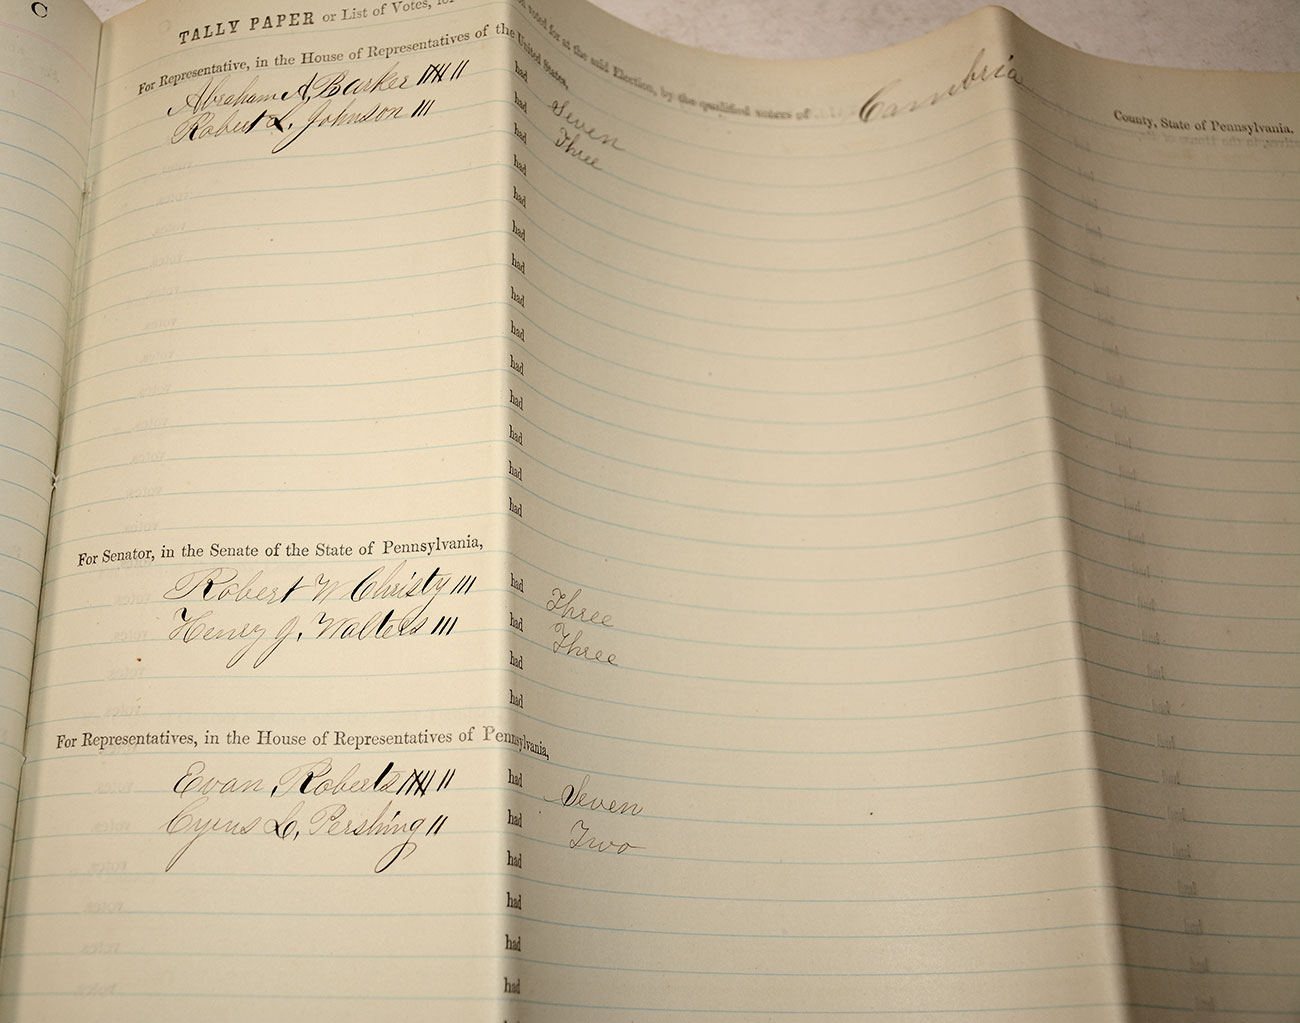 C
TALLY PAPER or List of Votes, for
on voted for at the said Election, by the qualified voters of Cambria County, State of Pennsylvania.
For Representative, in the House of Representatives of the United States,
Abraham A. Barker |||| || had Seven
Robert L. Johnson ||| had Three
had
had
had
had
had
had
had
had
had
had
had
had
For Senator, in the Senate of the State of Pennsylvania,
Robert W Christy ||| had Three
Henry J. Walters ||| had Three
had
had
For Representatives, in the House of Representatives of Pennsylvania,
Evan Roberts |||| || had Seven
Cyrus L. Pershing || had Two
had
had
had
had